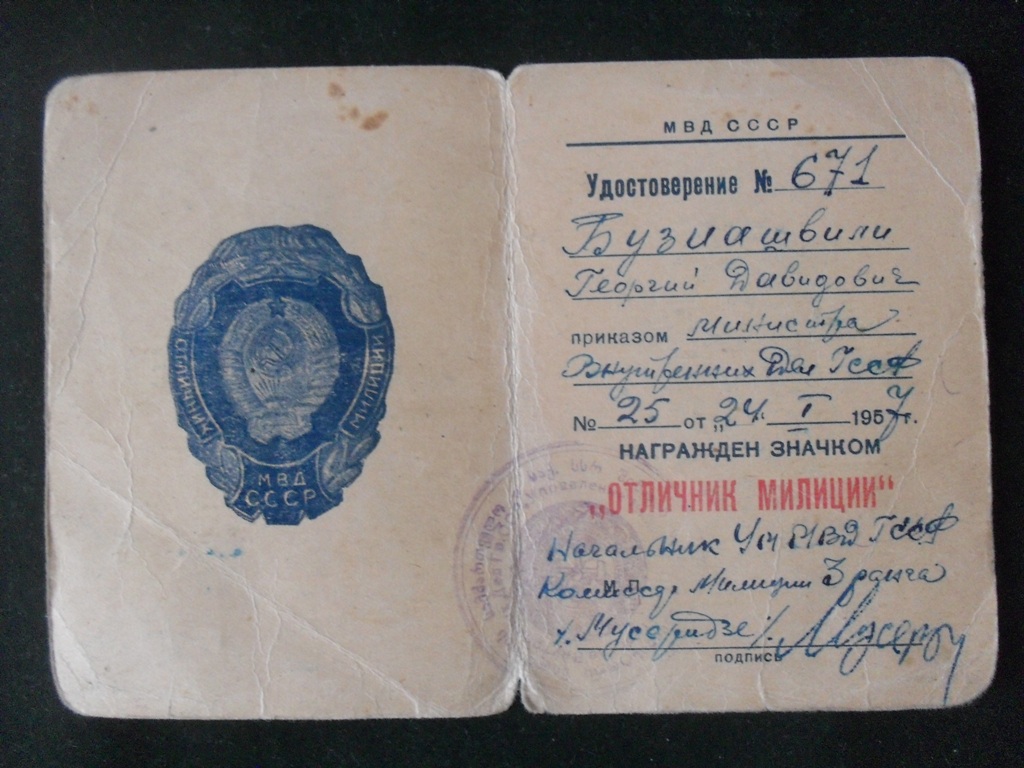 ОТЛИЧНИК
МИЛИЦИИ
МВД
СССР
МВД СССР
Удостоверение № 671
Бузиашвили
Георгий Давидович
приказом министра
Внутренних Дел ГССР
№ 25 от „24 I 1957 г.
НАГРАЖДЕН ЗНАЧКОМ
„ОТЛИЧНИК МИЛИЦИИ“
Начальник УМ МВД ГССР
Комиссар Милиции 3 ранга
М. П.
/Мусеридзе/
подпись